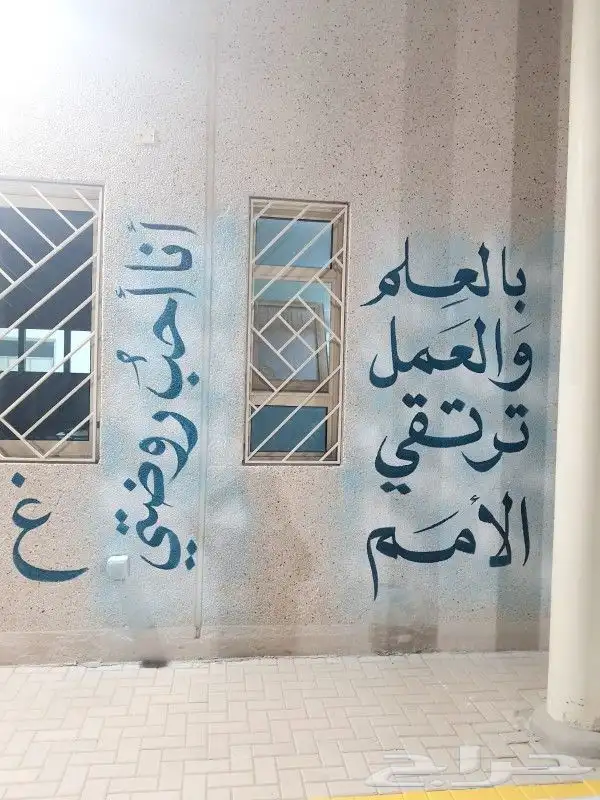 بالعِلم
وَالعَمل
ترتقي
الأمَم
أنا أحبُ روضتي
غ
حراج